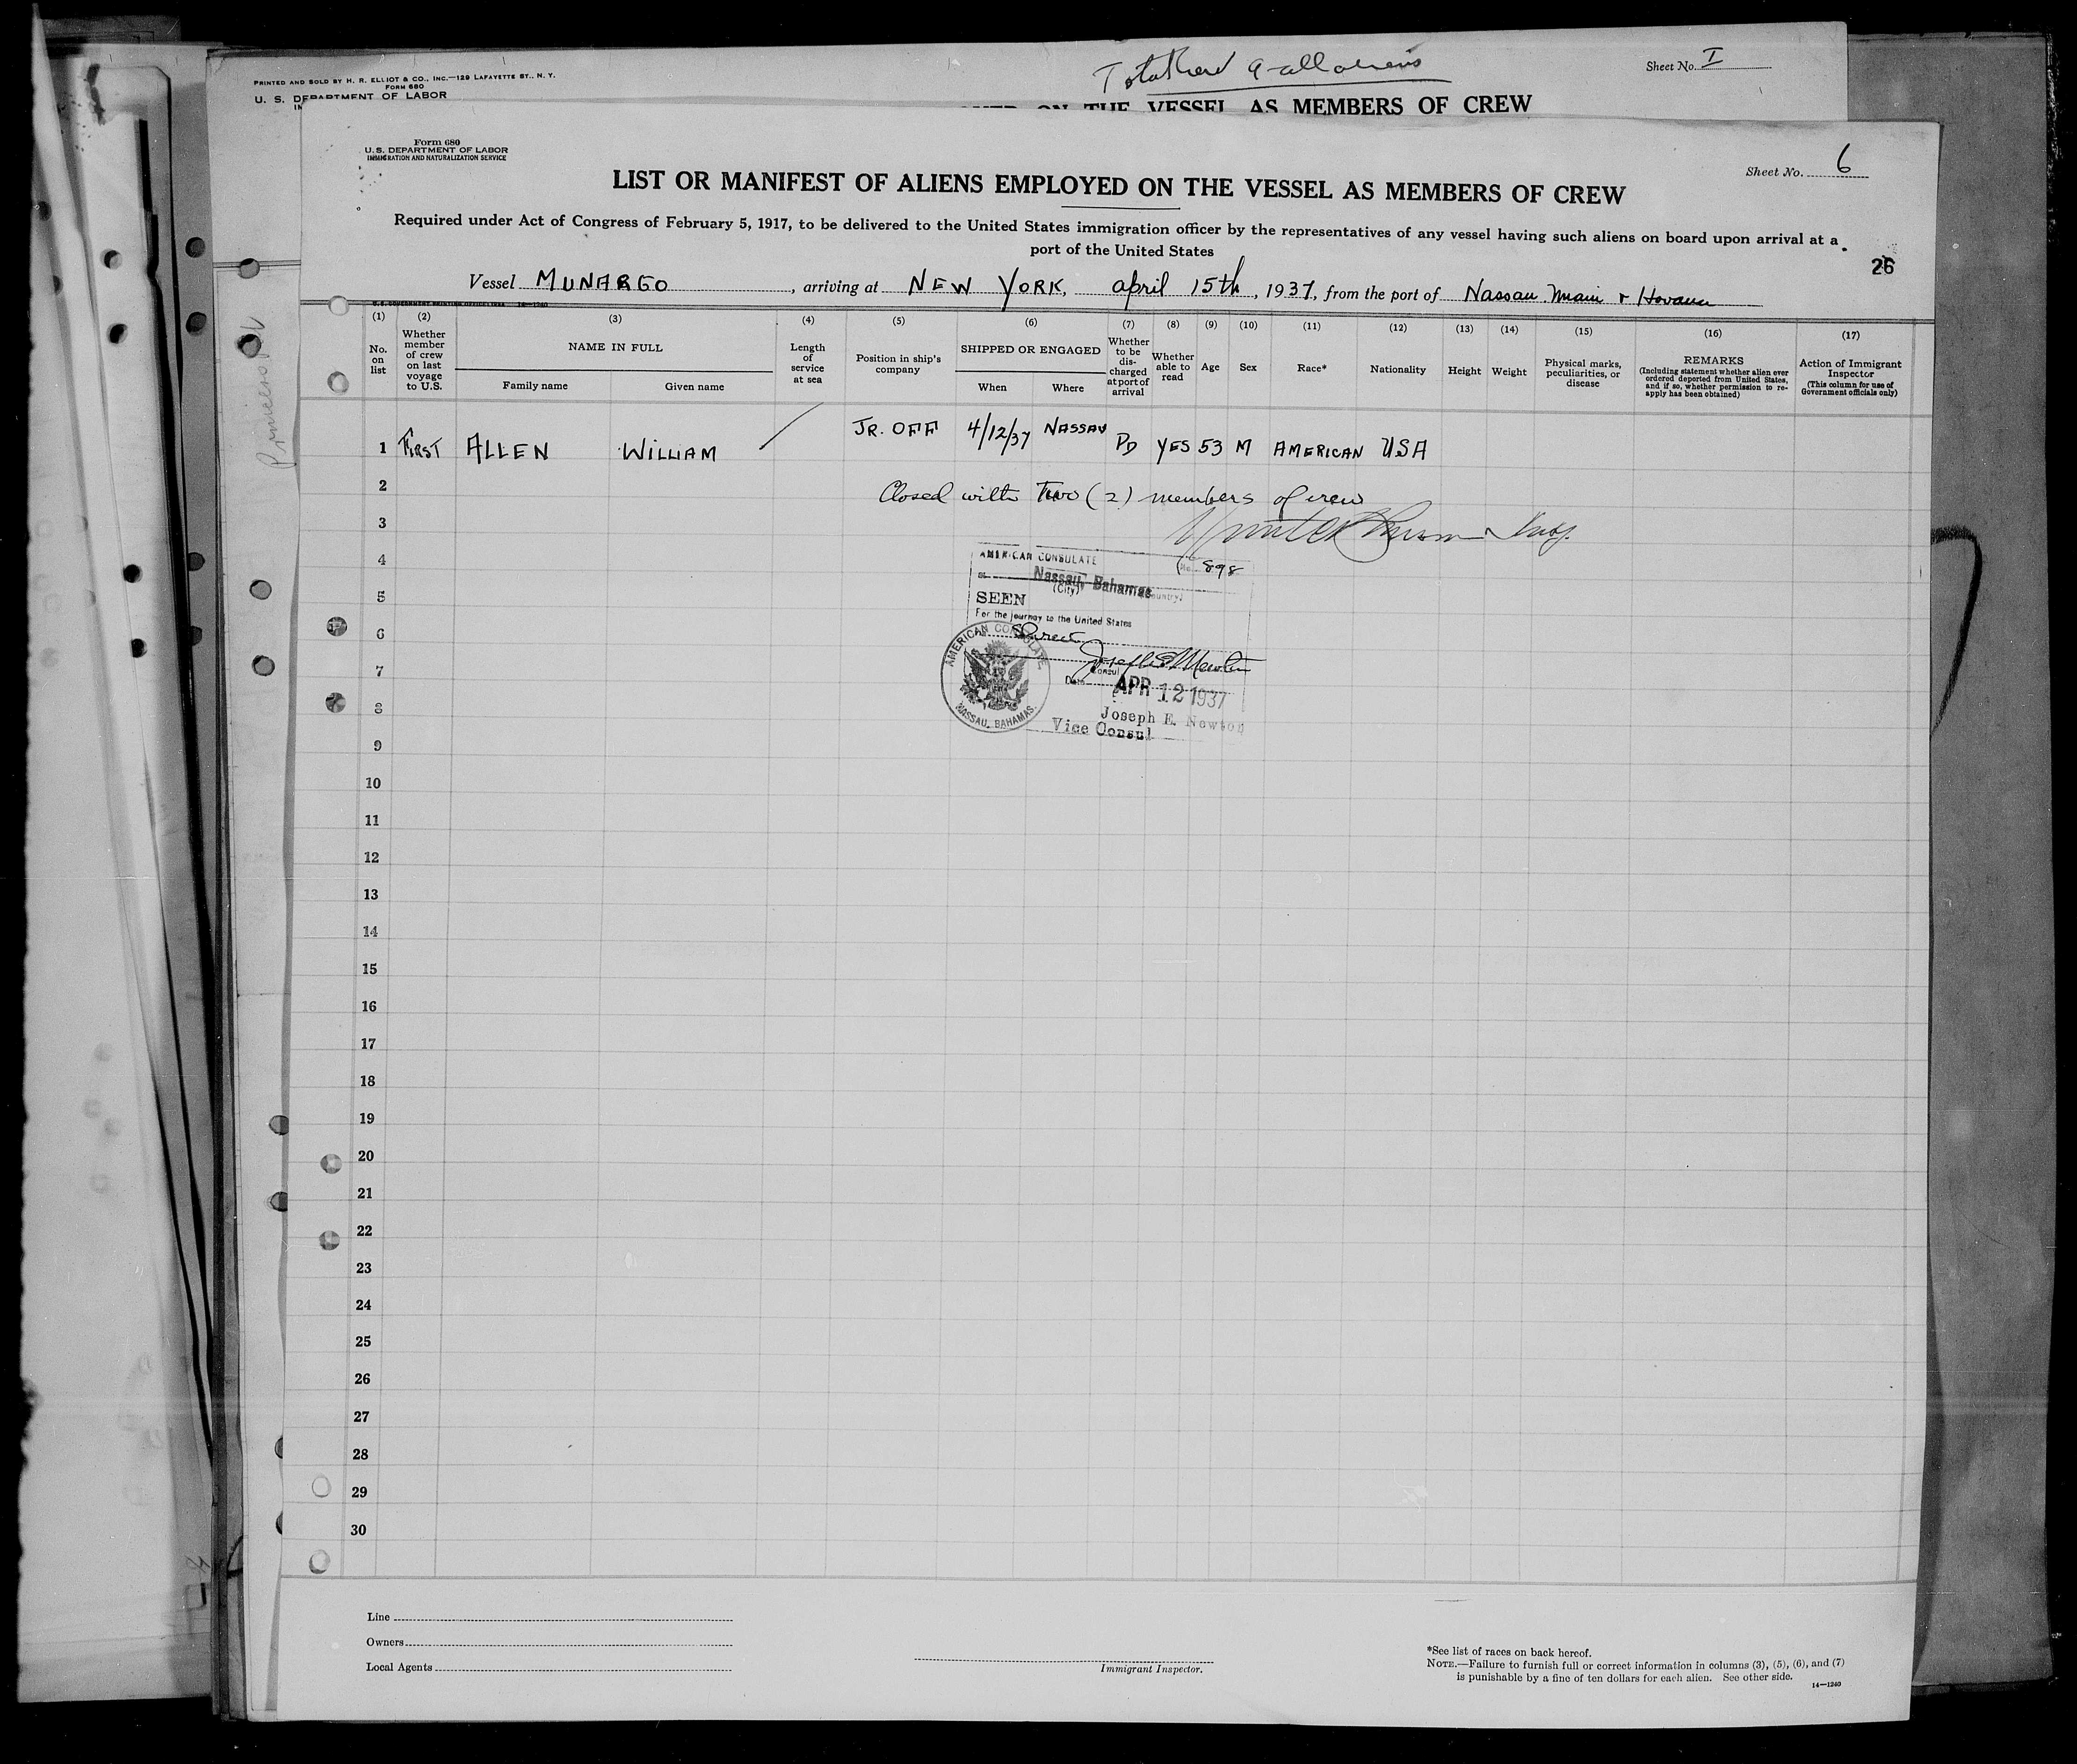 PRINTED AND SOLD BY H. R. ELLIOT & CO., INC.—129 LAFAYETTE ST., N. Y.
FORM 680
U. S. DEPARTMENT OF LABOR
Sheet No. I
ON THE VESSEL AS MEMBERS OF CREW
Form 680
U.S. DEPARTMENT OF LABOR
IMMIGRATION AND NATURALIZATION SERVICE
Sheet No. 6
LIST OR MANIFEST OF ALIENS EMPLOYED ON THE VESSEL AS MEMBERS OF CREW
Required under Act of Congress of February 5, 1917, to be delivered to the United States immigration officer by the representatives of any vessel having such aliens on board upon arrival at a
port of the United States
26
Vessel MUNARGO, arriving at NEW YORK, april 15th, 1937, from the port of Nassau Miami & Havana
(1) (2) (3) (4) (5) (6) (7) (8) (9) (10) (11) (12) (13) (14) (15) (16) (17)
No. on list
Whether member of crew on last voyage to U.S.
NAME IN FULL
Family name
Given name
Length of service at sea
Position in ship's company
SHIPPED OR ENGAGED
When
Where
Whether to be discharged at port of arrival
Whether able to read
Age
Sex
Race*
Nationality
Height
Weight
Physical marks, peculiarities, or disease
REMARKS
(Including statement whether alien ever ordered deported from United States, and if so, whether permission to reapply has been obtained)
Action of Immigrant Inspector
(This column for use of Government officials only)
1 FIRST ALLEN WILLIAM JR. OFF 4/12/37 NASSAU PD YES 53 M AMERICAN USA
2 Closed with Two (2) members of crew
3
4
5
6
7
8
9
10
11
12
13
14
15
16
17
18
19
20
21
22
23
24
25
26
27
28
29
30
AMERICAN CONSULATE
No. 898
at Nassau, Bahamas
(City) (Country)
SEEN
For the journey to the United States
Direct
AMERICAN CONSULATE
NASSAU, BAHAMAS.
Joseph E. Newton
Consul
Date APR 12 1937
Joseph E. Newton
Vice Consul
Line
Owners
Local Agents
Immigrant Inspector.
*See list of races on back hereof.
NOTE.—Failure to furnish full or correct information in columns (3), (5), (6), and (7)
is punishable by a fine of ten dollars for each alien. See other side.
14—1240